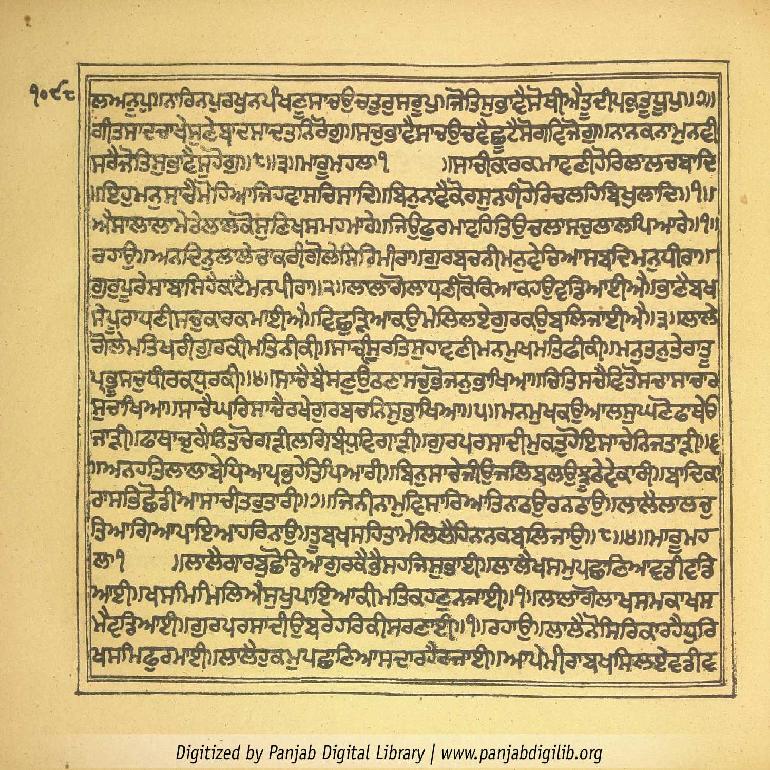 ੧੦੯੮
ਲਅਨੂਪੁ॥ਨਾਰਿਨਪੁਰਖੁਨਪੰਖਣੂਸਾਚਉਚਤੁਰੁਸਰੂਪੁ॥ਜੋਤਿਸੁਭਾਣੈਸੋਥੀਐਤੂਦੀਪਕੁਤੂਧੂਪੁ॥੭॥
ਗੀਤਸਾਦਚਾਖੇਸੁਣੇਬਾਦਸਾਦਤਨਿਰੋਗੁ॥ਸਚੁਭਾਣੈਸਾਚਉਚਵੈਛੂਟੈਸੋਗਵਿਜੋਗੁ॥ਨਾਨਕਨਾਮੁਨਵੀ
ਸਰੈਜੋਤਿਸੁਭਾਣੈਸੁਹੋਗੁ॥੮॥੩॥ਮਾਰੂਮਹਲਾ੧ ॥ਸਾਚੀਕਾਰਕਮਾਵਣੀਹੋਰਿਲਾਲਚਬਾਦਿ
॥ਇਹੁਮਨੁਸਾਚੈਮੋਹਿਆਜਿਹਵਾਸਚਿਸਾਦਿ॥ਬਿਨੁਨਾਵੈਕੋਰਸੁਨਹੀਹੋਰਿਚਲਹਿਬਿਖੁਲਾਦਿ॥੧॥
ਐਸਾਲਾਲਾਮੇਰੇਲਾਲਕੋਸੁਣਿਖਸਮਹਮਾਰੇ॥ਜਿਉਫੁਰਮਾਵਹਿਤਿਉਚਲਾਸਚੁਲਾਲਪਿਆਰੇ॥੧॥
ਰਹਾਉ॥ਅਨਦਿਨੁਲਾਲੇਚਾਕਰੀਗੋਲੇਸਿਰਿਮੀਰਾ॥ਗੁਰਬਚਨੀਮਨੁਵੇਚਿਆਸਬਦਿਮਨੁਧੀਰਾ॥
ਗੁਰਪੂਰੇਸਾਬਾਸਿਹੈਕਾਟੈਮਨਪੀਰਾ॥੨॥ਲਾਲਾਗੋਲਾਧਣੀਕੋਕਿਆਕਹਉਵਡਿਆਈਐ॥ਭਾਣੈਬਖ
ਸੇਪੂਰਾਧਣੀਸਚੁਕਾਰਕਮਾਈਐ॥ਵਿਛੁੜਿਆਕਉਮੇਲਿਲਏਗੁਰਕਉਬਲਿਜਾਈਐ॥੩॥ਲਾਲੇ
ਗੋਲੇਮਤਿਖਰੀਗੁਰਕੀਮਤਿਨੀਕੀ॥ਸਾਚੀਸੁਰਤਿਸੁਹਾਵਣੀਮਨਮੁਖਮਤਿਫੀਕੀ॥ਮਨੁਤਨੁਤੇਰਾਤੂ
ਪ੍ਰਭੂਸਚੁਧੀਰਕਧੁਰਕੀ॥੪॥ਸਾਚੈਬੈਸਣੁਉਠਣਾਸਚੁਭੋਜਨੁਭਾਖਿਆ॥ਚਿਤਿਸਚੈਵਿਤੋਸਚਾਸਾਚਾਰ
ਸੁਚਾਖਿਆ॥ਸਾਚੈਘਰਿਸਾਚੈਰਖੇਗੁਰਬਚਨਿਸੁਭਾਖਿਆ॥੫॥ਮਨਮੁਖਕਉਆਲਸੁਘਣੋਫਾਥੇਓ
ਜਾੜੀ॥ਫਾਥਾਚੁਗੈਨਿਤਚੋਗੜੀਲਗਿਬੰਧੁਵਿਗਾੜੀ॥ਗੁਰਪਰਸਾਦੀਮੁਕਤੁਹੋਇਸਾਚੇਨਿਜਤਾੜੀ॥੬
॥ਅਨਹਤਿਲਾਲਾਬੇਧਿਆਪ੍ਰਭਹੇਤਿਪਿਆਰੀ॥ਬਿਨੁਸਾਚੇਜੀਉਜਲਿਬਲਉਝੂਠੇਵੇਕਾਰੀ॥ਬਾਦਿਕਾ
ਰਾਸਭਿਛੋਡੀਆਸਾਚੀਤਰੁਤਾਰੀ॥੭॥ਜਿਨੀਨਾਮੁਵਿਸਾਰਿਆਤਿਨਾਠਉਰਨਠਾਉ॥ਲਾਲੈਲਾਲਚੁ
ਤਿਆਗਿਆਪਾਇਆਹਰਿਨਾਉ॥ਤੂਬਖਸਹਿਤਾਮੇਲਿਲੈਹਿਨਾਨਕਬਲਿਜਾਉ॥੮॥੪॥ਮਾਰੂਮਹ
ਲਾ੧ ॥ਲਾਲੈਗਾਰਬੁਛੋਡਿਆਗੁਰਕੈਭੈਸਹਜਿਸੁਭਾਈ॥ਲਾਲੈਖਸਮੁਪਛਾਣਿਆਵਡੀਵਡਿ
ਆਈ॥ਖਸਮਿਮਿਲਿਐਸੁਖੁਪਾਇਆਕੀਮਤਿਕਹਣੁਨਜਾਈ॥੧॥ਲਾਲਾਗੋਲਾਖਸਮਕਾਖਸ
ਮੈਵਡਿਆਈ॥ਗੁਰਪਰਸਾਦੀਉਬਰੇਹਰਿਕੀਸਰਣਾਈ॥੧॥ਰਹਾਉ॥ਲਾਲੈਨੋਸਿਰਿਕਾਰਹੈਧੁਰਿ
ਖਸਮਿਫੁਰਮਾਈ॥ਲਾਲੈਹੁਕਮੁਪਛਾਣਿਆਸਦਾਰਹੈਰਜਾਈ॥ਆਪੇਮੀਰਾਬਖਸਿਲਏਵਡੀਵ
Digitized by Panjab Digital Library | www.panjabdigilib.org